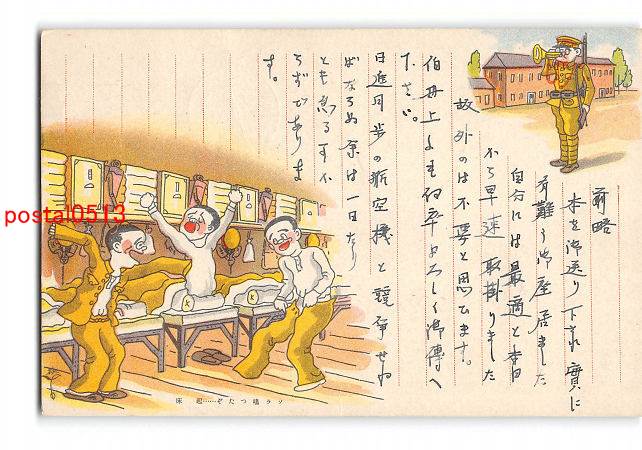 前略
本を御送り下され實に
有難う御座居ました
自分には最適と本日
から早速取掛りました
故外のは不要と思ひます。
伯母上にも何卒よろしく御傳へ
下さい。
日進月歩の航空機と競爭せね
ばならぬ余は一日たり
とも怠る可不
らずであります
す。
ソラ鳴つたぞ……起床
postal0513